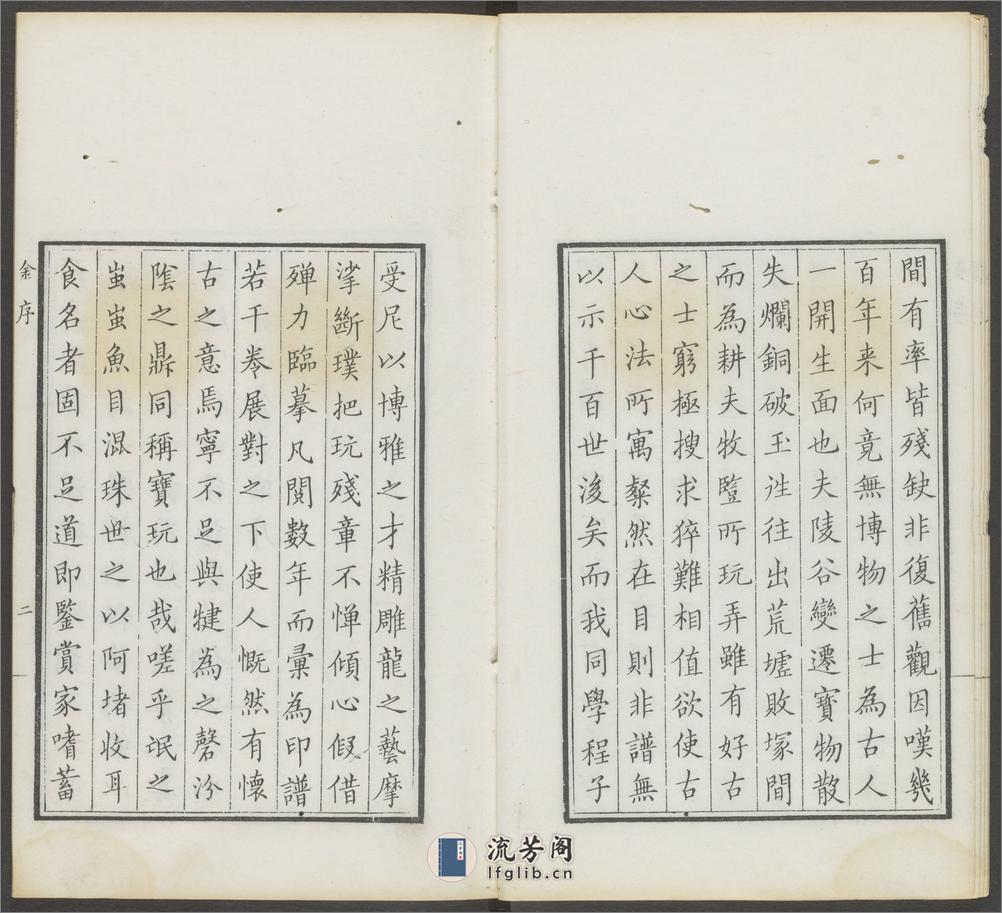 間有率皆殘缺非復舊觀因嘆幾
百年来何竟無博物之士為古人
一開生面也夫陵谷變遷寶物散
失爛銅破玉徃往出荒墟敗塚間
而為耕夫牧豎所玩弄雖有好古
之士窮極搜求猝難相值欲使古
人心法所寓粲然在目則非譜無
以示千百世後矣而我同學程子
受尼以博雅之才精雕龍之藝摩
挲斷璞把玩殘章不憚傾心假借
殫力臨摹凡閱數年而彙為印譜
若干卷展對之下使人慨然有懷
古之意焉寧不足與犍為之磬汾
陰之鼎同稱寶玩也哉嗟乎氓之
蚩蚩魚目混珠世之以阿堵收耳
食名者固不足道即鑒賞家嗜蓄
金序
二
流芳阁
lfglib.cn